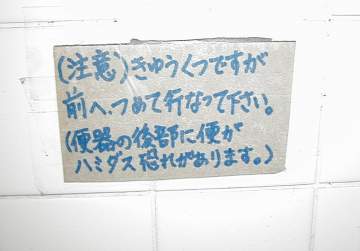 (注意)きゅうくつですが
前へ、つめて行なって下さい。
(便器の後部に便が
ハミダス恐れがあります。)